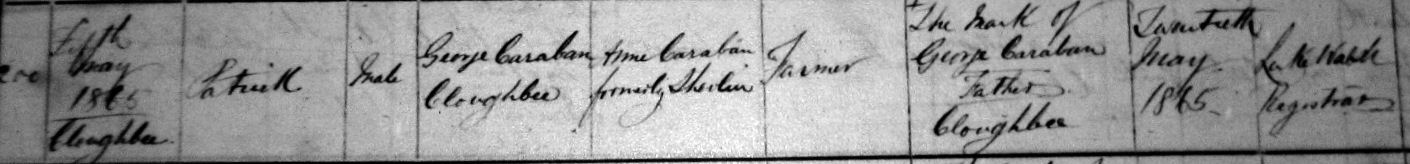 200
Fifth
May
1865
Cloughbee
Patrick
Male
George Caraban
Cloughbee
Anne Caraban
formerly
Farmer
The Mark of
George Caraban
Father
Cloughbee
Twentieth
May
1865
Luke Walsh
Registrar